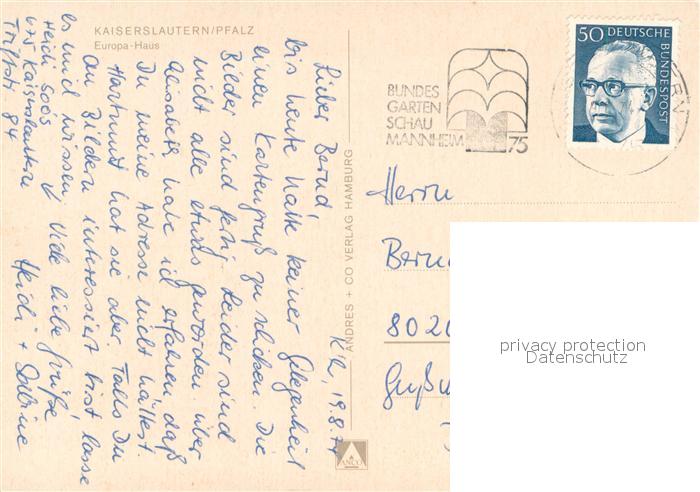 KAISERSLAUTERN/PFALZ
Europa-Haus
K'ln, 19.8.74
Lieber Bernd,
bis heute hatte keiner Gelegenheit
einen Kartengruß zu schicken. Die
Bilder sind fertig. Leider sind
nicht alle etwas geworden. Über
Elisabeth habe ich erfahren, daß
Du meine Adresse nicht hättest.
Hartmut hat sie aber. Falls Du
an Bildern interessiert bist lasse
es mich wissen. Viele liebe Grüße
Heidi + Sabine
Heidi Soos
675 Kaiserslautern
84
ANDRES + CO VERLAG HAMBURG
ANCO
BUNDES
GARTEN
SCHAU
MANNHEIM 75
50 DEUTSCHE
BUNDESPOST
Herrn
802
privacy protection
Datenschutz